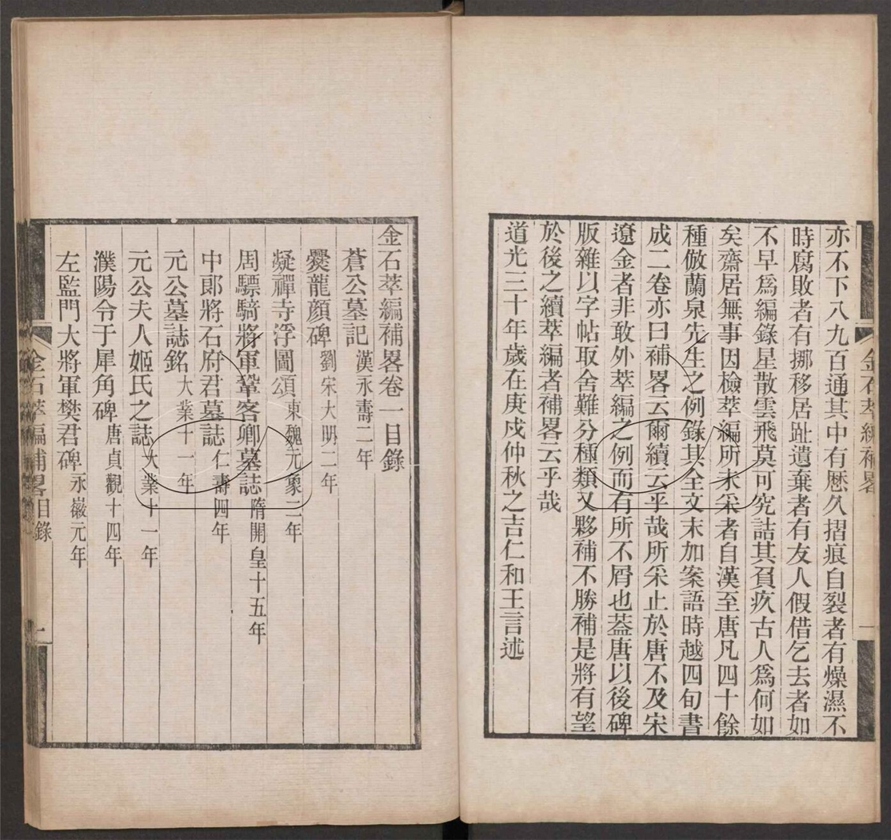 亦不下八九百通其中有厯久摺痕自裂者有燥濕不
時腐敗者有挪移居趾遺棄者有友人假借乞去者如
不早爲編錄星散雲飛莫可究詰其負疚古人爲何如
矣齋居無事因檢萃編所未采者自漢至唐凡四十餘
種倣蘭泉先生之例錄其全文末加案語時越四旬書
成二卷亦曰補畧云爾續云乎哉所采止於唐不及宋
遼金者非敢外萃編之例而有所不屑也葢唐以後碑
版雜以字帖取舍難分種類又夥補不勝補是將有望
於後之續萃編者補畧云乎哉
道光三十年歲在庚戌仲秋之吉仁和王言述
金石萃編補畧卷一目錄
蒼公墓記 漢永壽二年
爨龍顔碑 劉宋大明二年
凝禪寺浮圖頌 東魏元象二年
周驃騎將軍鞏客卿墓誌 隋開皇十五年
中郎將石府君墓誌 仁壽四年
元公墓誌銘 大業十一年
元公夫人姬氏之誌 大業十一年
濮陽令于犀角碑 唐貞觀十四年
左監門大將軍樊君碑 永徽元年
金石萃編補畧目錄 一